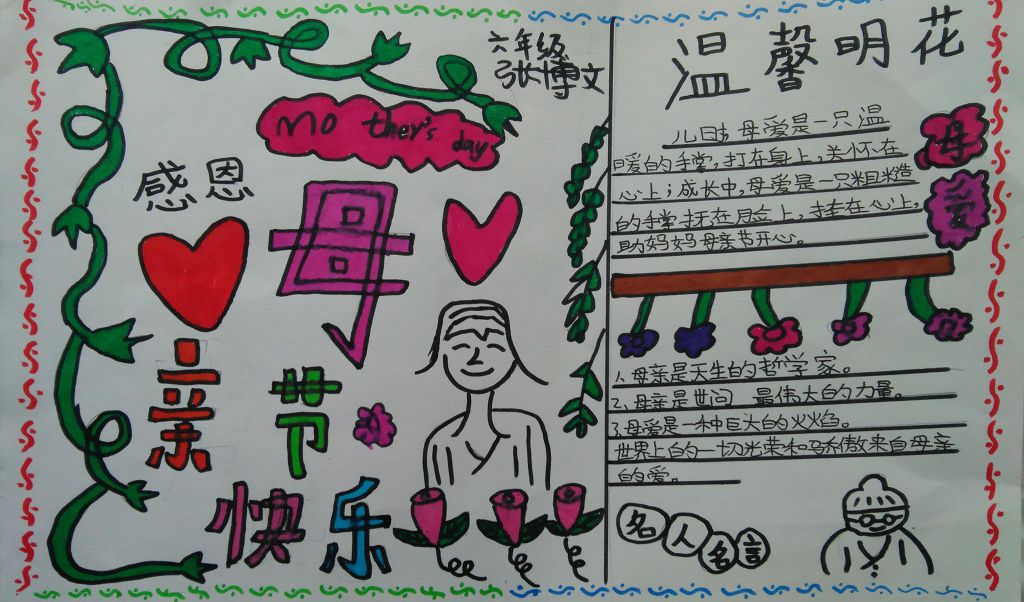 六年级
张博文
mother's day
感恩
母
亲节
快乐
温馨明花
母
爱
儿时，母爱是一只温
暖的手掌，打在身上，关怀在
心上；成长中，母爱是一只粗糙
的手掌抚在脸上，挂在心上，
助妈妈母亲节开心。
1、母亲是天生的哲学家。
2、母亲是世间 最伟大的力量。
3、母爱是一种巨大的火焰。
世界上的一切光荣和骄傲来自母亲
的爱。
名人名言